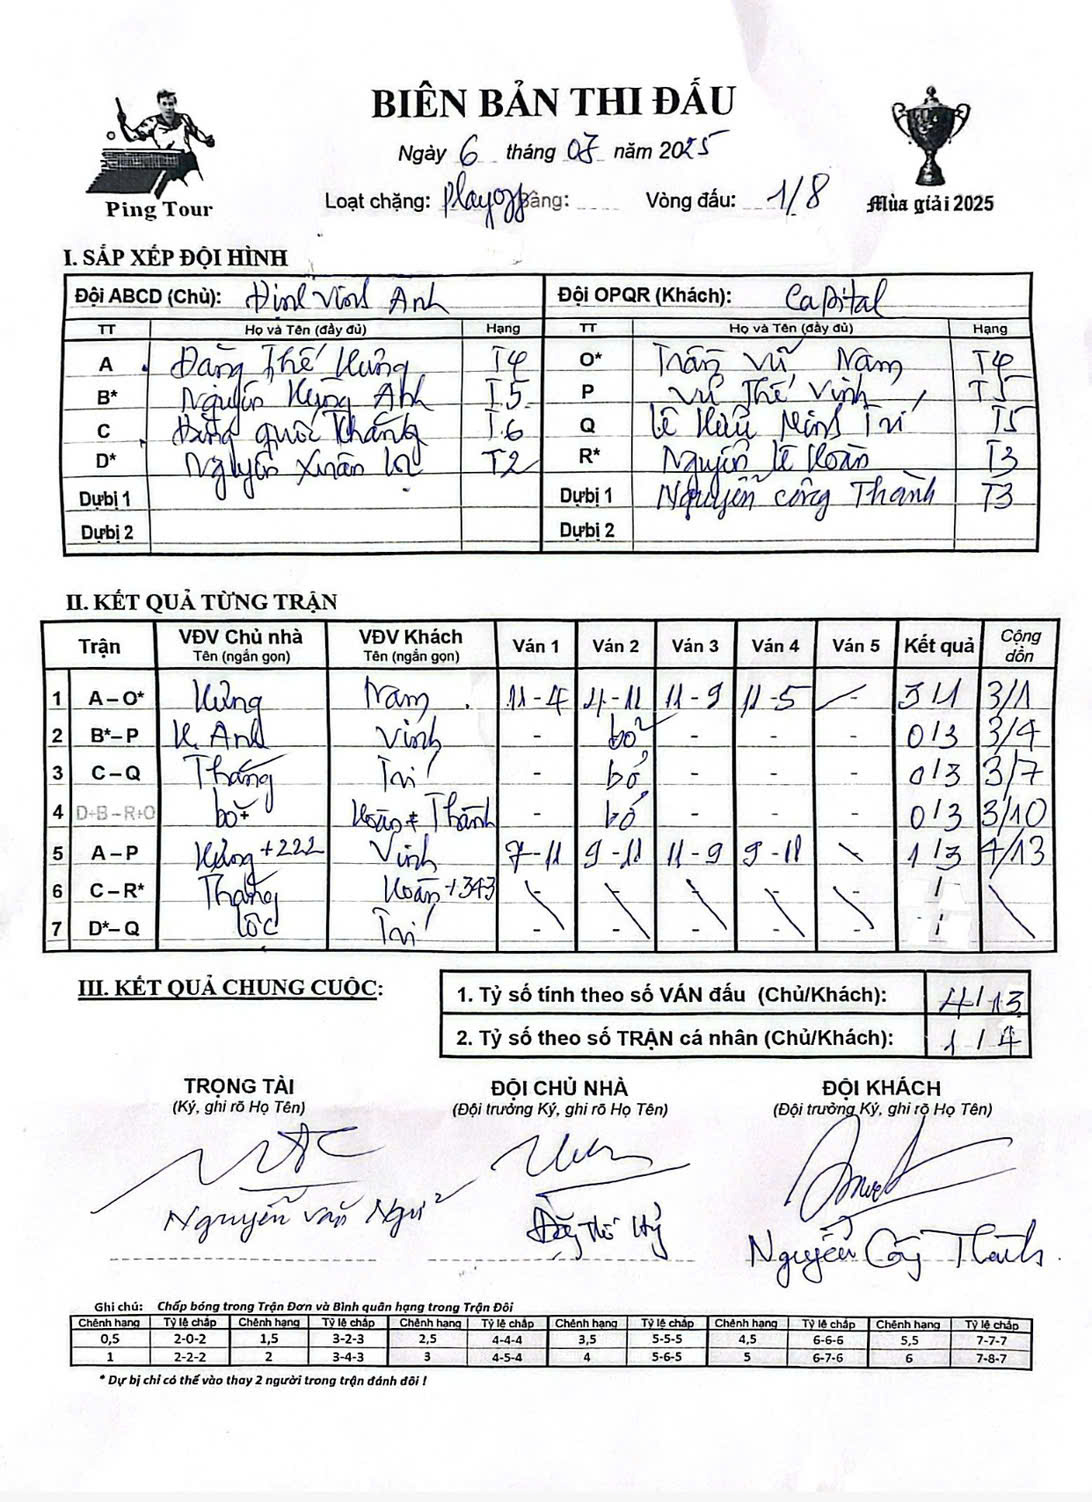 BIÊN BẢN THI ĐẤU
Ngày 6 tháng 07 năm 2025
Loạt chặng: Playoff Bảng: Vòng đấu: 1/8
Ping Tour
Mùa giải 2025
I. SẮP XẾP ĐỘI HÌNH
Đội ABCD (Chủ): Đinh Vinh Anh Đội OPQR (Khách): Capital
TT Họ và Tên (đầy đủ) Hạng TT Họ và Tên (đầy đủ) Hạng
A Đặng Thế Hưng T4 O* Trần Vũ Nam T4
B* Nguyễn Hùng Anh T5 P Vũ Thế Vinh T5
C Đặng Quốc Thắng T.6 Q Lê Hữu Minh Trí T5
D* Nguyễn Xuân Lộc T2 R* Nguyễn Lê Hoàn T3
Dự bị 1 Dự bị 1 Nguyễn Công Thành T3
Dự bị 2 Dự bị 2
II. KẾT QUẢ TỪNG TRẬN
Trận VĐV Chủ nhà VĐV Khách Ván 1 Ván 2 Ván 3 Ván 4 Ván 5 Kết quả Cộng dồn
Tên (ngắn gọn) Tên (ngắn gọn)
1 A – O* Hưng Nam 11-4 4-11 11-9 11-5 - 3/1 3/1
2 B* – P H. Anh Vinh - bỏ - - - 0/3 3/4
3 C – Q Thắng Trí - bỏ - - - 0/3 3/7
4 D+B – R+O bỏ Hoàn + Thành bỏ 0/3 3/10
5 A – P Hưng +222 Vinh 7-11 9-11 11-9 9-11 - 1/3 4/13
6 C – R* Thắng Hoàn +343 - - - - - /
7 D* – Q Lộc Trí - - - - - /
III. KẾT QUẢ CHUNG CUỘC:
1. Tỷ số tính theo số VÁN đấu (Chủ/Khách): 4/13
2. Tỷ số theo số TRẬN cá nhân (Chủ/Khách): 1/4
TRỌNG TÀI ĐỘI CHỦ NHÀ ĐỘI KHÁCH
(Ký, ghi rõ Họ Tên) (Đội trưởng Ký, ghi rõ Họ Tên) (Đội trưởng Ký, ghi rõ Họ Tên)
Nguyễn Văn Ngữ Nguyễn Công Thành
Ghi chú: Chấp bóng trong Trận Đơn và Bình quân hạng trong Trận Đôi
Chênh hạng Tỷ lệ chấp Chênh hạng Tỷ lệ chấp Chênh hạng Tỷ lệ chấp Chênh hạng Tỷ lệ chấp Chênh hạng Tỷ lệ chấp Chênh hạng Tỷ lệ chấp
0,5 2-0-2 1,5 3-2-3 2,5 4-4-4 3,5 5-5-5 4,5 6-6-6 5,5 7-7-7
1 2-2-2 2 3-4-3 3 4-5-4 4 5-6-5 5 6-7-6 6 7-8-7
* Dự bị chỉ có thể vào thay 2 người trong trận đánh đôi !